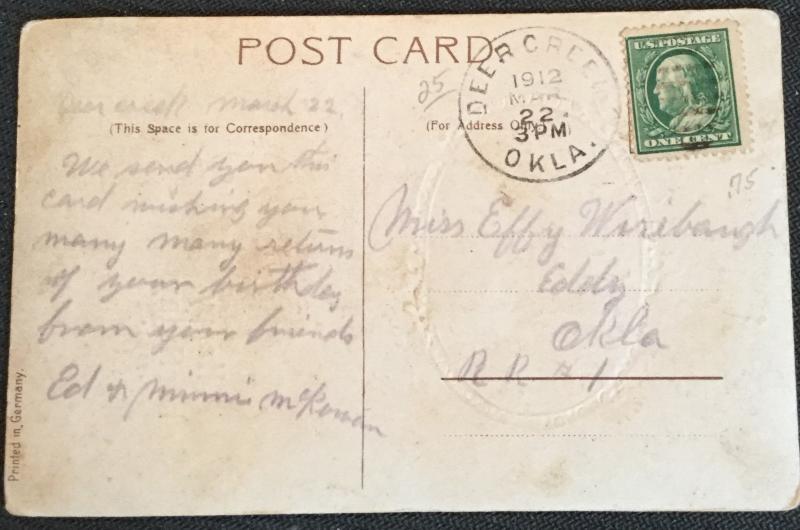 POST CARD
DEER CREEK
1912
MAR
22
3PM
OKLA.
U.S. POSTAGE
ONE CENT
25
.75
Deer creek March 22
(This Space is for Correspondence)
(For Address Only)
We send you this
card wishing you
many many return
of your birthday
from your friends
Ed & Minnie McKowen
Miss Effy Wirebaugh
Eddy
Okla
R R # 1
Printed in Germany.